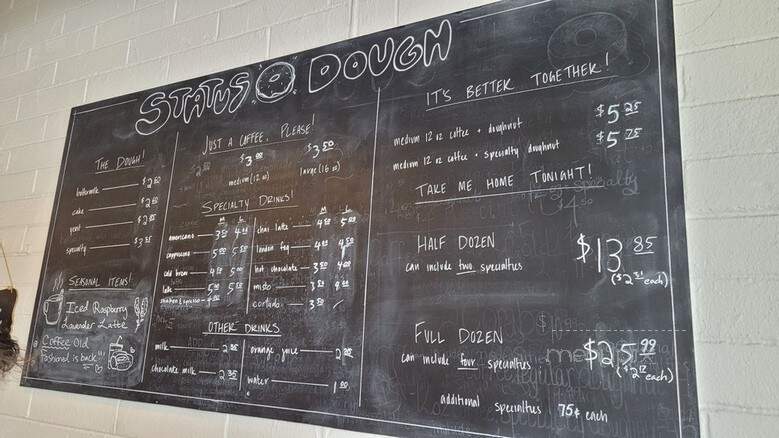 STATUS DOUGH
THE DOUGH!
buttermilk
cake
yeast
specialty
SEASONAL ITEMS!
Iced Raspberry
Lavender Latte
Coffee Old
Fashional is back!!
JUST A COFFEE, PLEASE!
$3.00 $3.50
medium (12 oz) large (16 oz)
SPECIALTY DRINKS!
M L M L
americano
cappuccino
cold brew
latte
shaken espresso
chai latte
london fog
hot chocolate
misto
cortado
OTHER DRINKS
milk
chocolate milk
orange juice
water 1.00
IT'S BETTER TOGETHER!
medium 12 oz coffee + doughnut $5.25
medium 12 oz coffee + specialty doughnut $5.75
TAKE ME HOME TONIGHT!
HALF DOZEN $13.85
can include two specialties ($2.31 each)
FULL DOZEN $25.99
can include four specialties ($2.17 each)
additional specialties 75¢ each